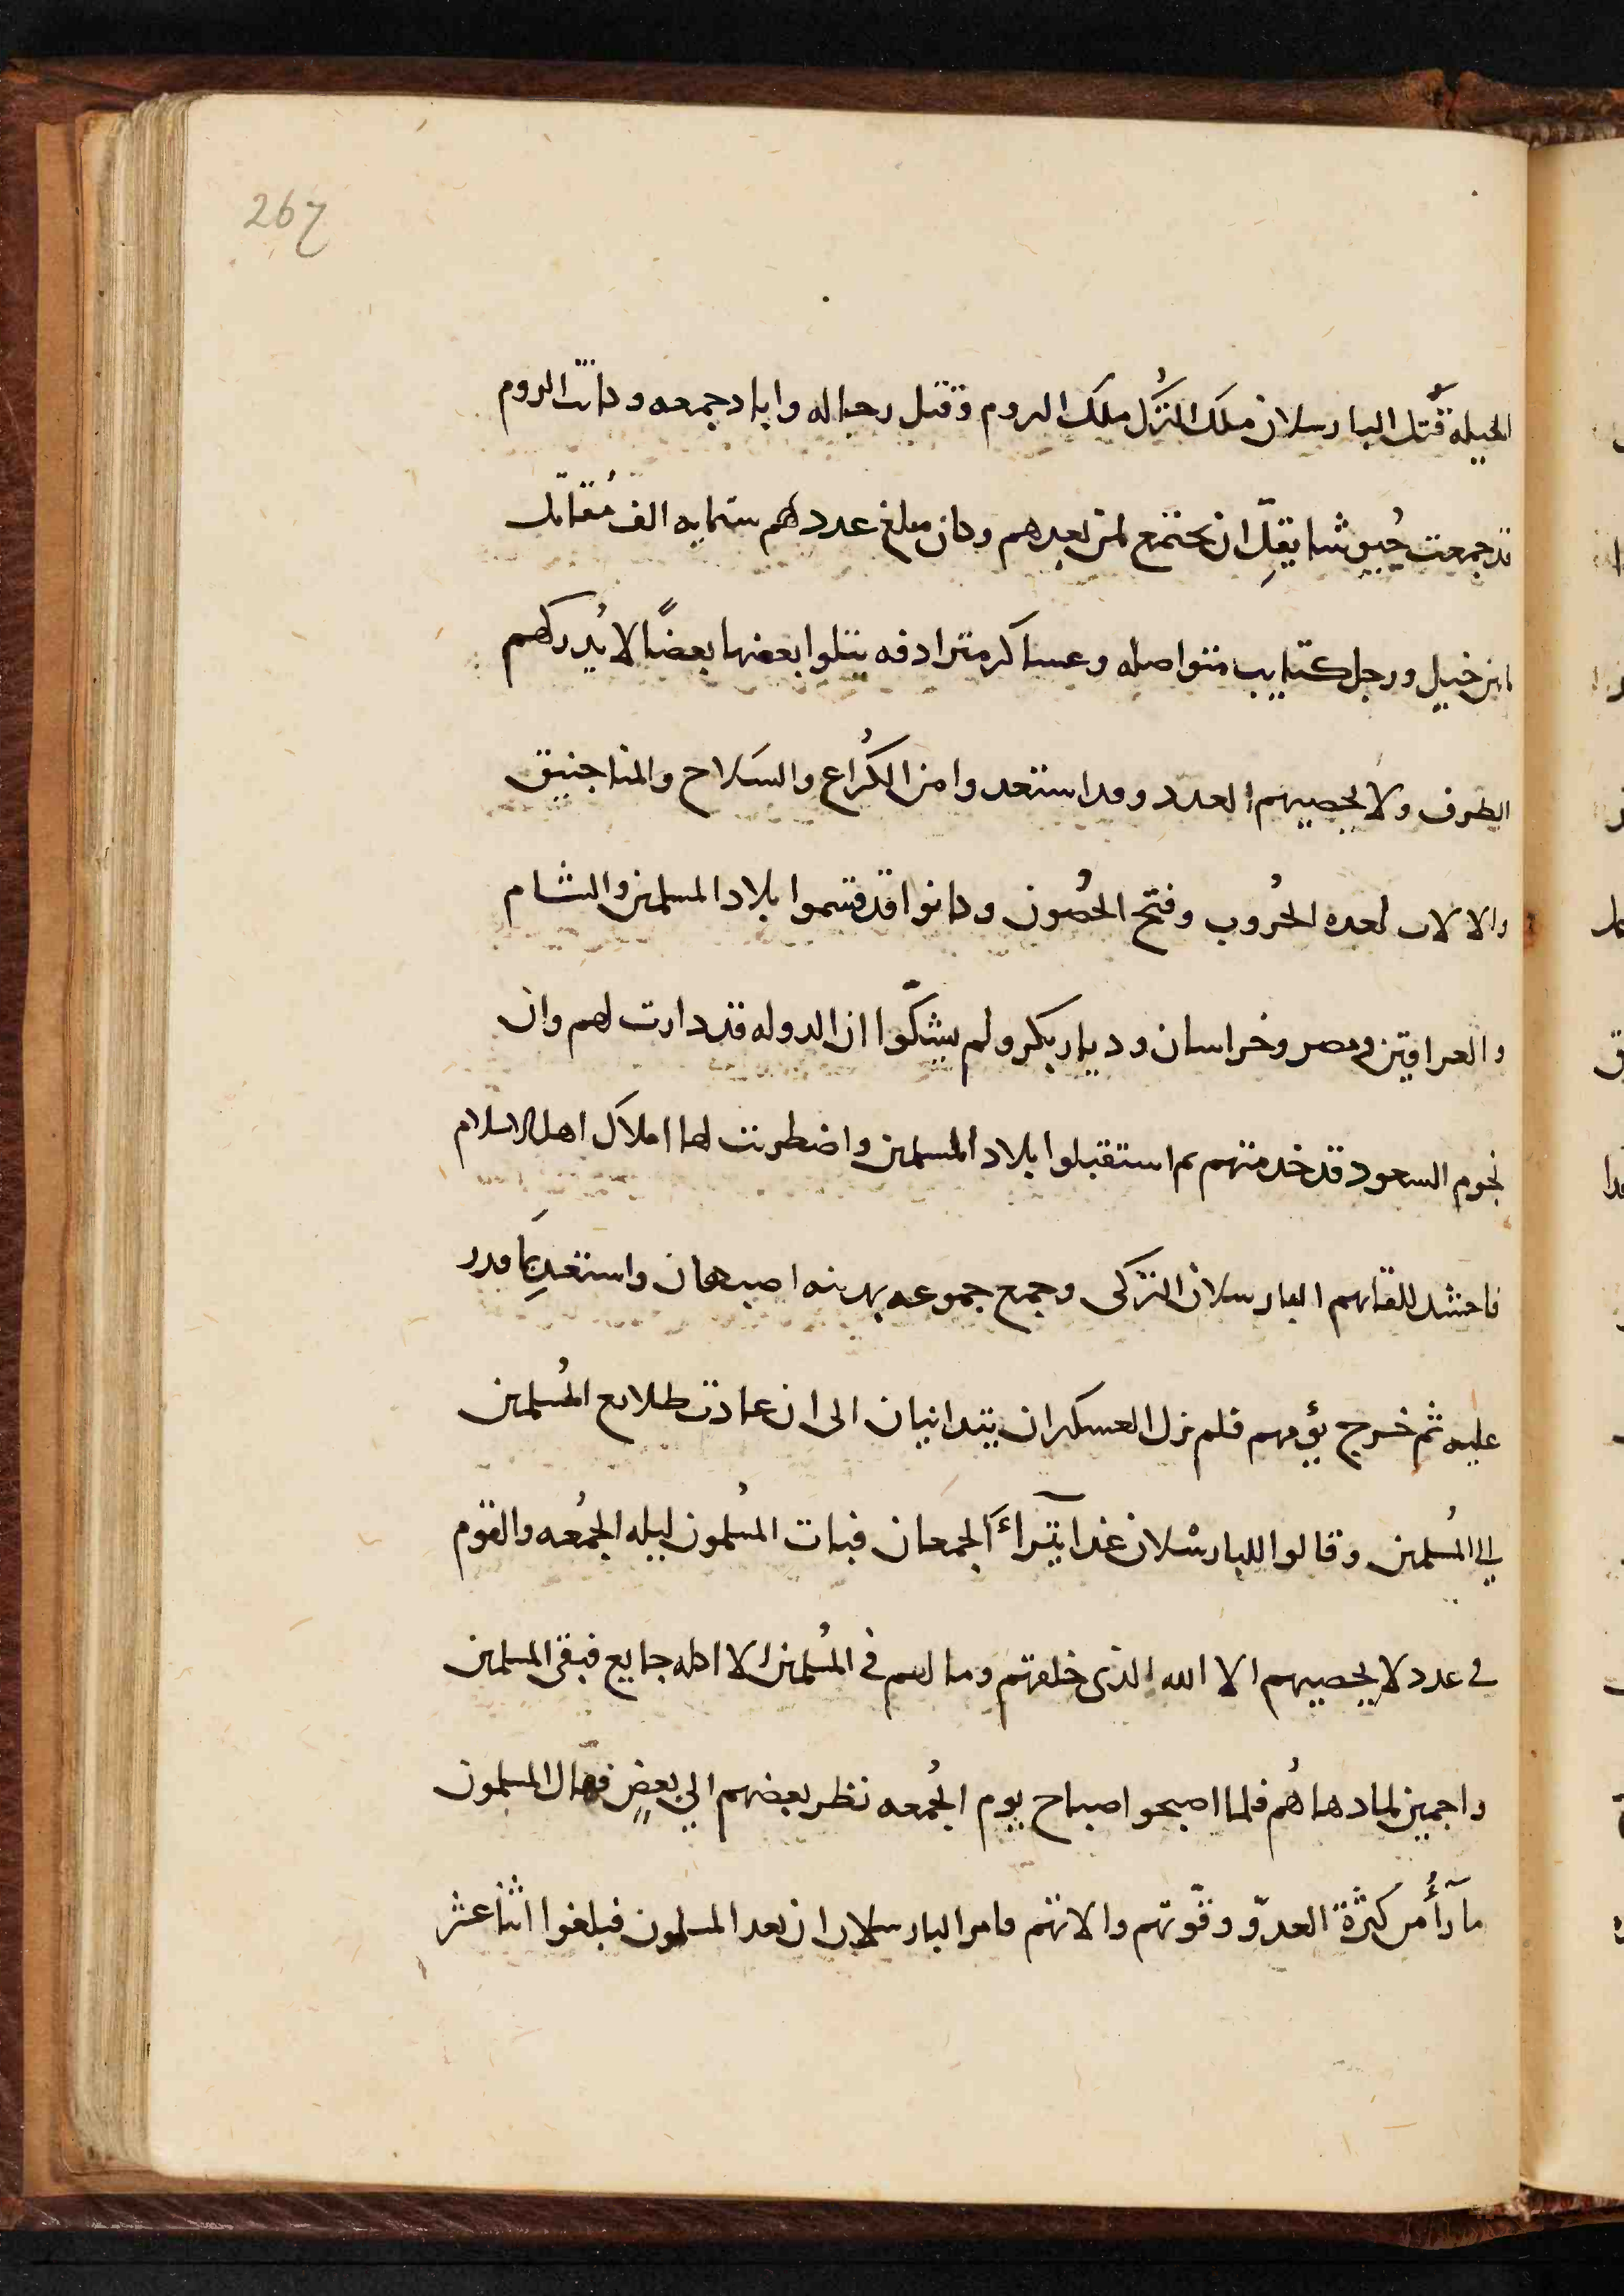 267
الحيله قتل البارسلان ملك الترك ملك الروم وقتل رجاله واباد جمعه وكانت الروم
قد جمعت جيوشا يقل ان يجتمع لمن بعدهم وكان مبلغ عددهم ستمايه الف مقاتل
من خيل ورجل كتايب متواصله وعساكر مترادفه يتلوا بعضها بعضًا لا يُدركهم
الطرف ولا يحصيهم العدد وقد استعدوا من الكُراع والسلاح والمناجنيق
والالات لعده الحُروب وفتح الحُصون وكانوا قد قسموا بلاد المسلمين والشام
والعراقين ومصر وخراسان وديار بكر ولم يشكّوا ان الدوله قد دارت لهم وان
نجوم السعود قد خدمتهم ثم استقبلوا بلاد المسلمين واضطربت لها املاك اهل الاسلام
فاحتشد للقايهم البارسلان التركى وجمع جموعه بمدينه اصبهان واستعد بما قدر
عليه ثم خرج يؤمهم فلم يزل العسكران يتدانيان الى ان عادت طلايع المُسلمين
الي المُسلمين وقالوا للبارسْلان غدا يتراءَ الجمعان فبات المُسلمون ليله الجُمعه والقوم
في عدد لا يحصيهم الا الله الذى خلقهم وما لهم في المُسلمين الا اكله جايع فبقى المسلمين
واجمين لما دهاهُم فلما اصبحوا صباح يوم الجُمعه نظر بعضهم الي بعضٍ فهال المسلمون
ما رأُ من كثرة العدوّ وقوّتهم والاتهم فامر البارسلان ان يعد المسلمون فبلغوا اثنا عشر